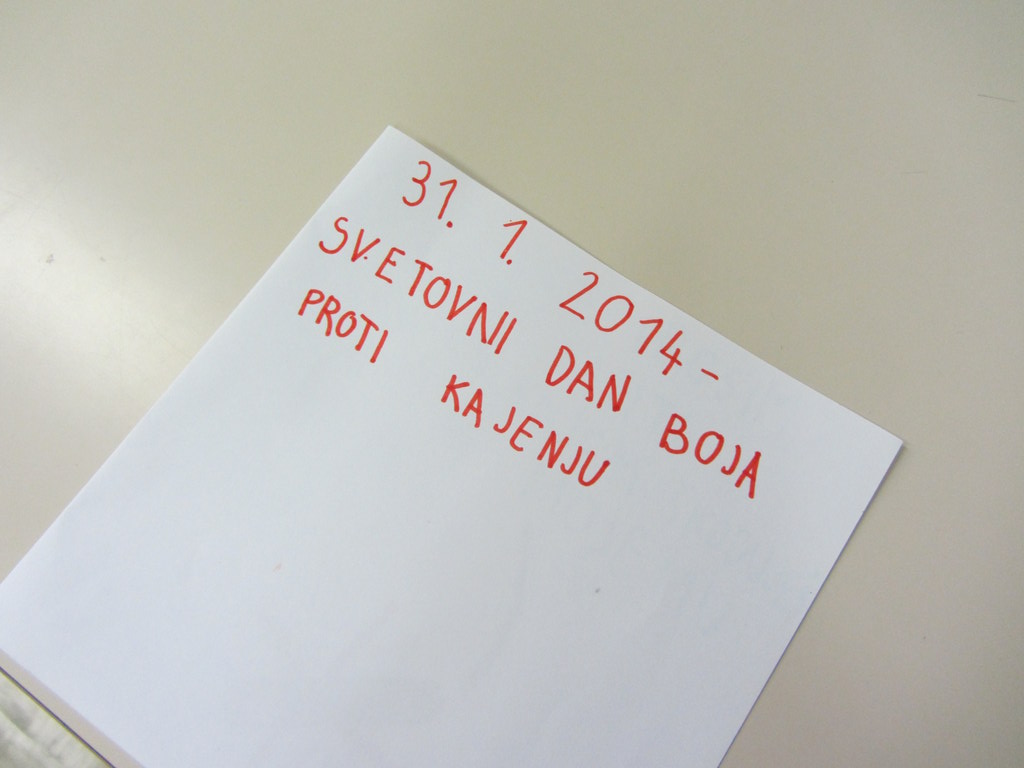 31. 1. 2014-
SVETOVNI DAN BOJA
PROTI KAJENJU